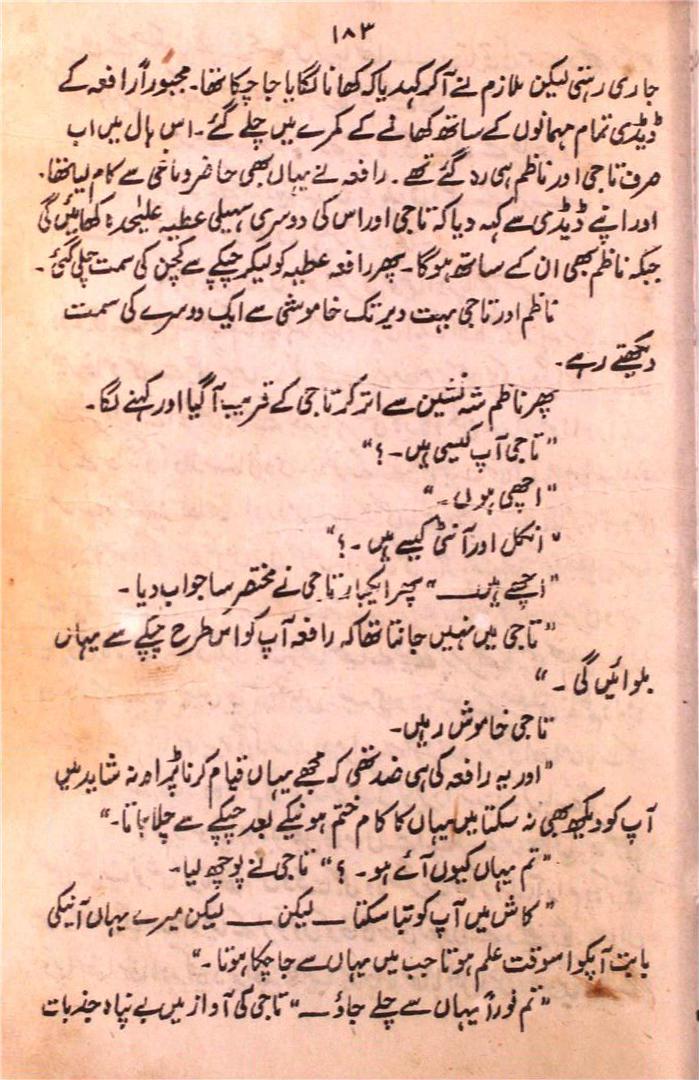 ۱۸۳
جاری رہتی لیکن ملازم نے آ کر کہدیا کہ کھانا لگایا جا چکا تھا۔ مجبوراً رافعہ کے
ڈیڈی تمام مہمانوں کے ساتھ کھانے کے کمرے میں چلے گئے۔ اس ہال میں اب
صرف تاجی اور ناظم ہی رہ گئے تھے۔ رافعہ نے یہاں بھی حاضر دماغی سے کام لیا تھا۔
اور اپنے ڈیڈی سے کہہ دیا کہ تاجی اور اس کی دوسری سہیلی عطیہ علیٰحدہ کھائیں گی
جبکہ ناظم بھی ان کے ساتھ ہوگا۔ پھر رافعہ عطیہ کو لیکر چپکے سے کچن کی سمت چلی گئی۔
ناظم اور تاجی بہت دیر تک خاموشی سے ایک دوسرے کی سمت
دیکھتے رہے۔
پھر ناظم شہ نشین سے اتر کر تاجی کے قریب آ گیا اور کہنے لگا۔
"تاجی آپ کیسی ہیں۔؟"
"اچھی ہوں۔"
"انکل اور آنٹی کیسے ہیں۔؟"
"اچھے ہیں ــــ" پھر ایکبار تاجی نے مختصر سا جواب دیا۔
"تاجی میں نہیں جانتا تھا کہ رافعہ آپ کو اس طرح چپکے سے یہاں
بلوائیں گی۔"
تاجی خاموش رہیں۔
"اور یہ رافعہ کی ہی ضد تھی کہ مجھے یہاں قیام کرنا پڑا ورنہ شاید میں
آپ کو دیکھ بھی نہ سکتا میں یہاں کا کام ختم ہونیکے بعد چپکے سے چلا جاتا۔"
"تم یہاں کیوں آئے ہو۔؟" تاجی نے پوچھ لیا۔
"کاش میں آپ کو بتا سکتا ــ لیکن ــــ لیکن میرے یہاں آنیکی
بابت آپکو اسوقت علم ہوتا جب میں یہاں سے جا چکا ہوتا۔"
"تم فوراً یہاں سے چلے جاؤ ــــ" تاجی کی آواز میں بے پناہ جذبات